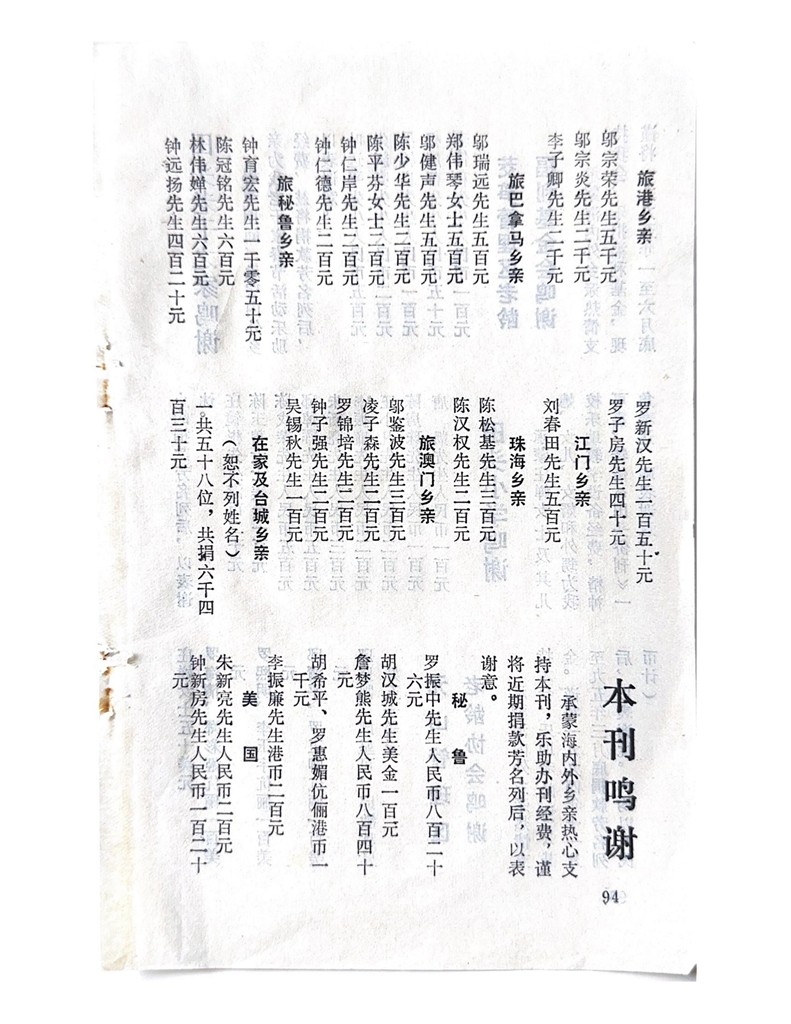 旅港乡亲
邬宗荣先生五千元
邬宗炎先生二千元
李子卿先生二千元
旅巴拿马乡亲
邬瑞远先生五百元
郑伟琴女士五百元
邬健声先生五百元
陈少华先生二百元
陈平芬女士二百元
钟仁岸先生二百元
钟仁德先生二百元
旅秘鲁乡亲
钟育宏先生一千零五十元
陈冠铭先生六百元
林伟婵先生六百元
钟远扬先生四百二十元
罗新汉先生一百五十元
罗子房先生四十元
江门乡亲
刘春田先生五百元
珠海乡亲
陈松基先生三百元
陈汉权先生二百元
旅澳门乡亲
邬鉴波先生三百元
凌子森先生二百元
罗锦培先生二百元
钟子强先生二百元
吴锡秋先生一百元
在家及台城乡亲
（恕不列姓名）
一共五十八位，共捐六千四
百三十元
本刊鸣谢
承蒙海内外乡亲热心支
持本刊，乐助办刊经费，谨
将近期捐款芳名列后，以表
谢意。
秘鲁
罗振中先生人民币八百二十
六元
胡汉城先生美金一百元
詹梦熊先生人民币八百四十
元
胡希平、罗惠媚伉俪港币一
千元
李振廉先生港币二百元
美国
朱新亮先生人民币二百元
钟新房先生人民币一百二十
元
94